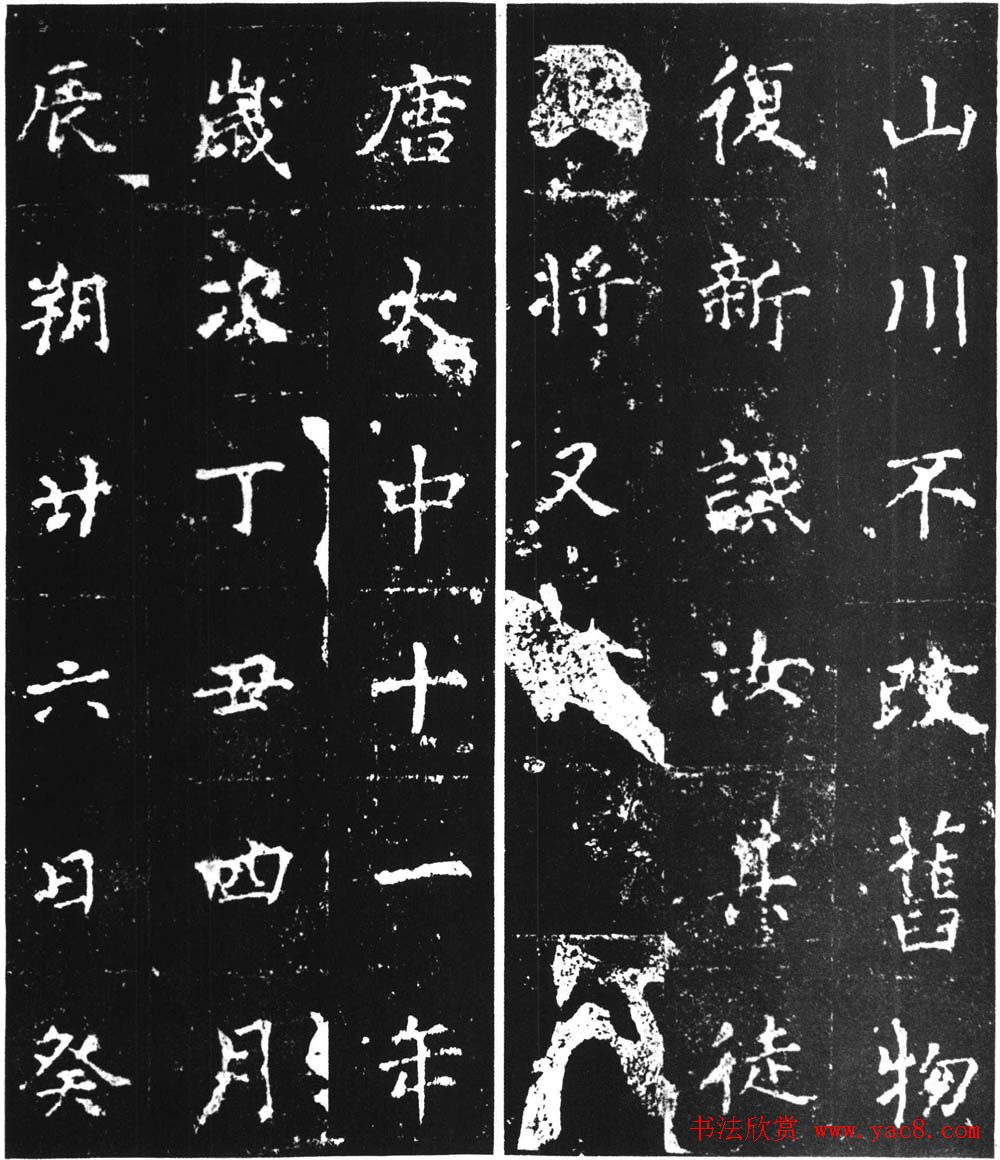 山川不改舊物
復新汝其徒
將又
唐大中十一年
歲次丁丑四月
辰朔廿六日癸
书法欣赏 www.yac8.com